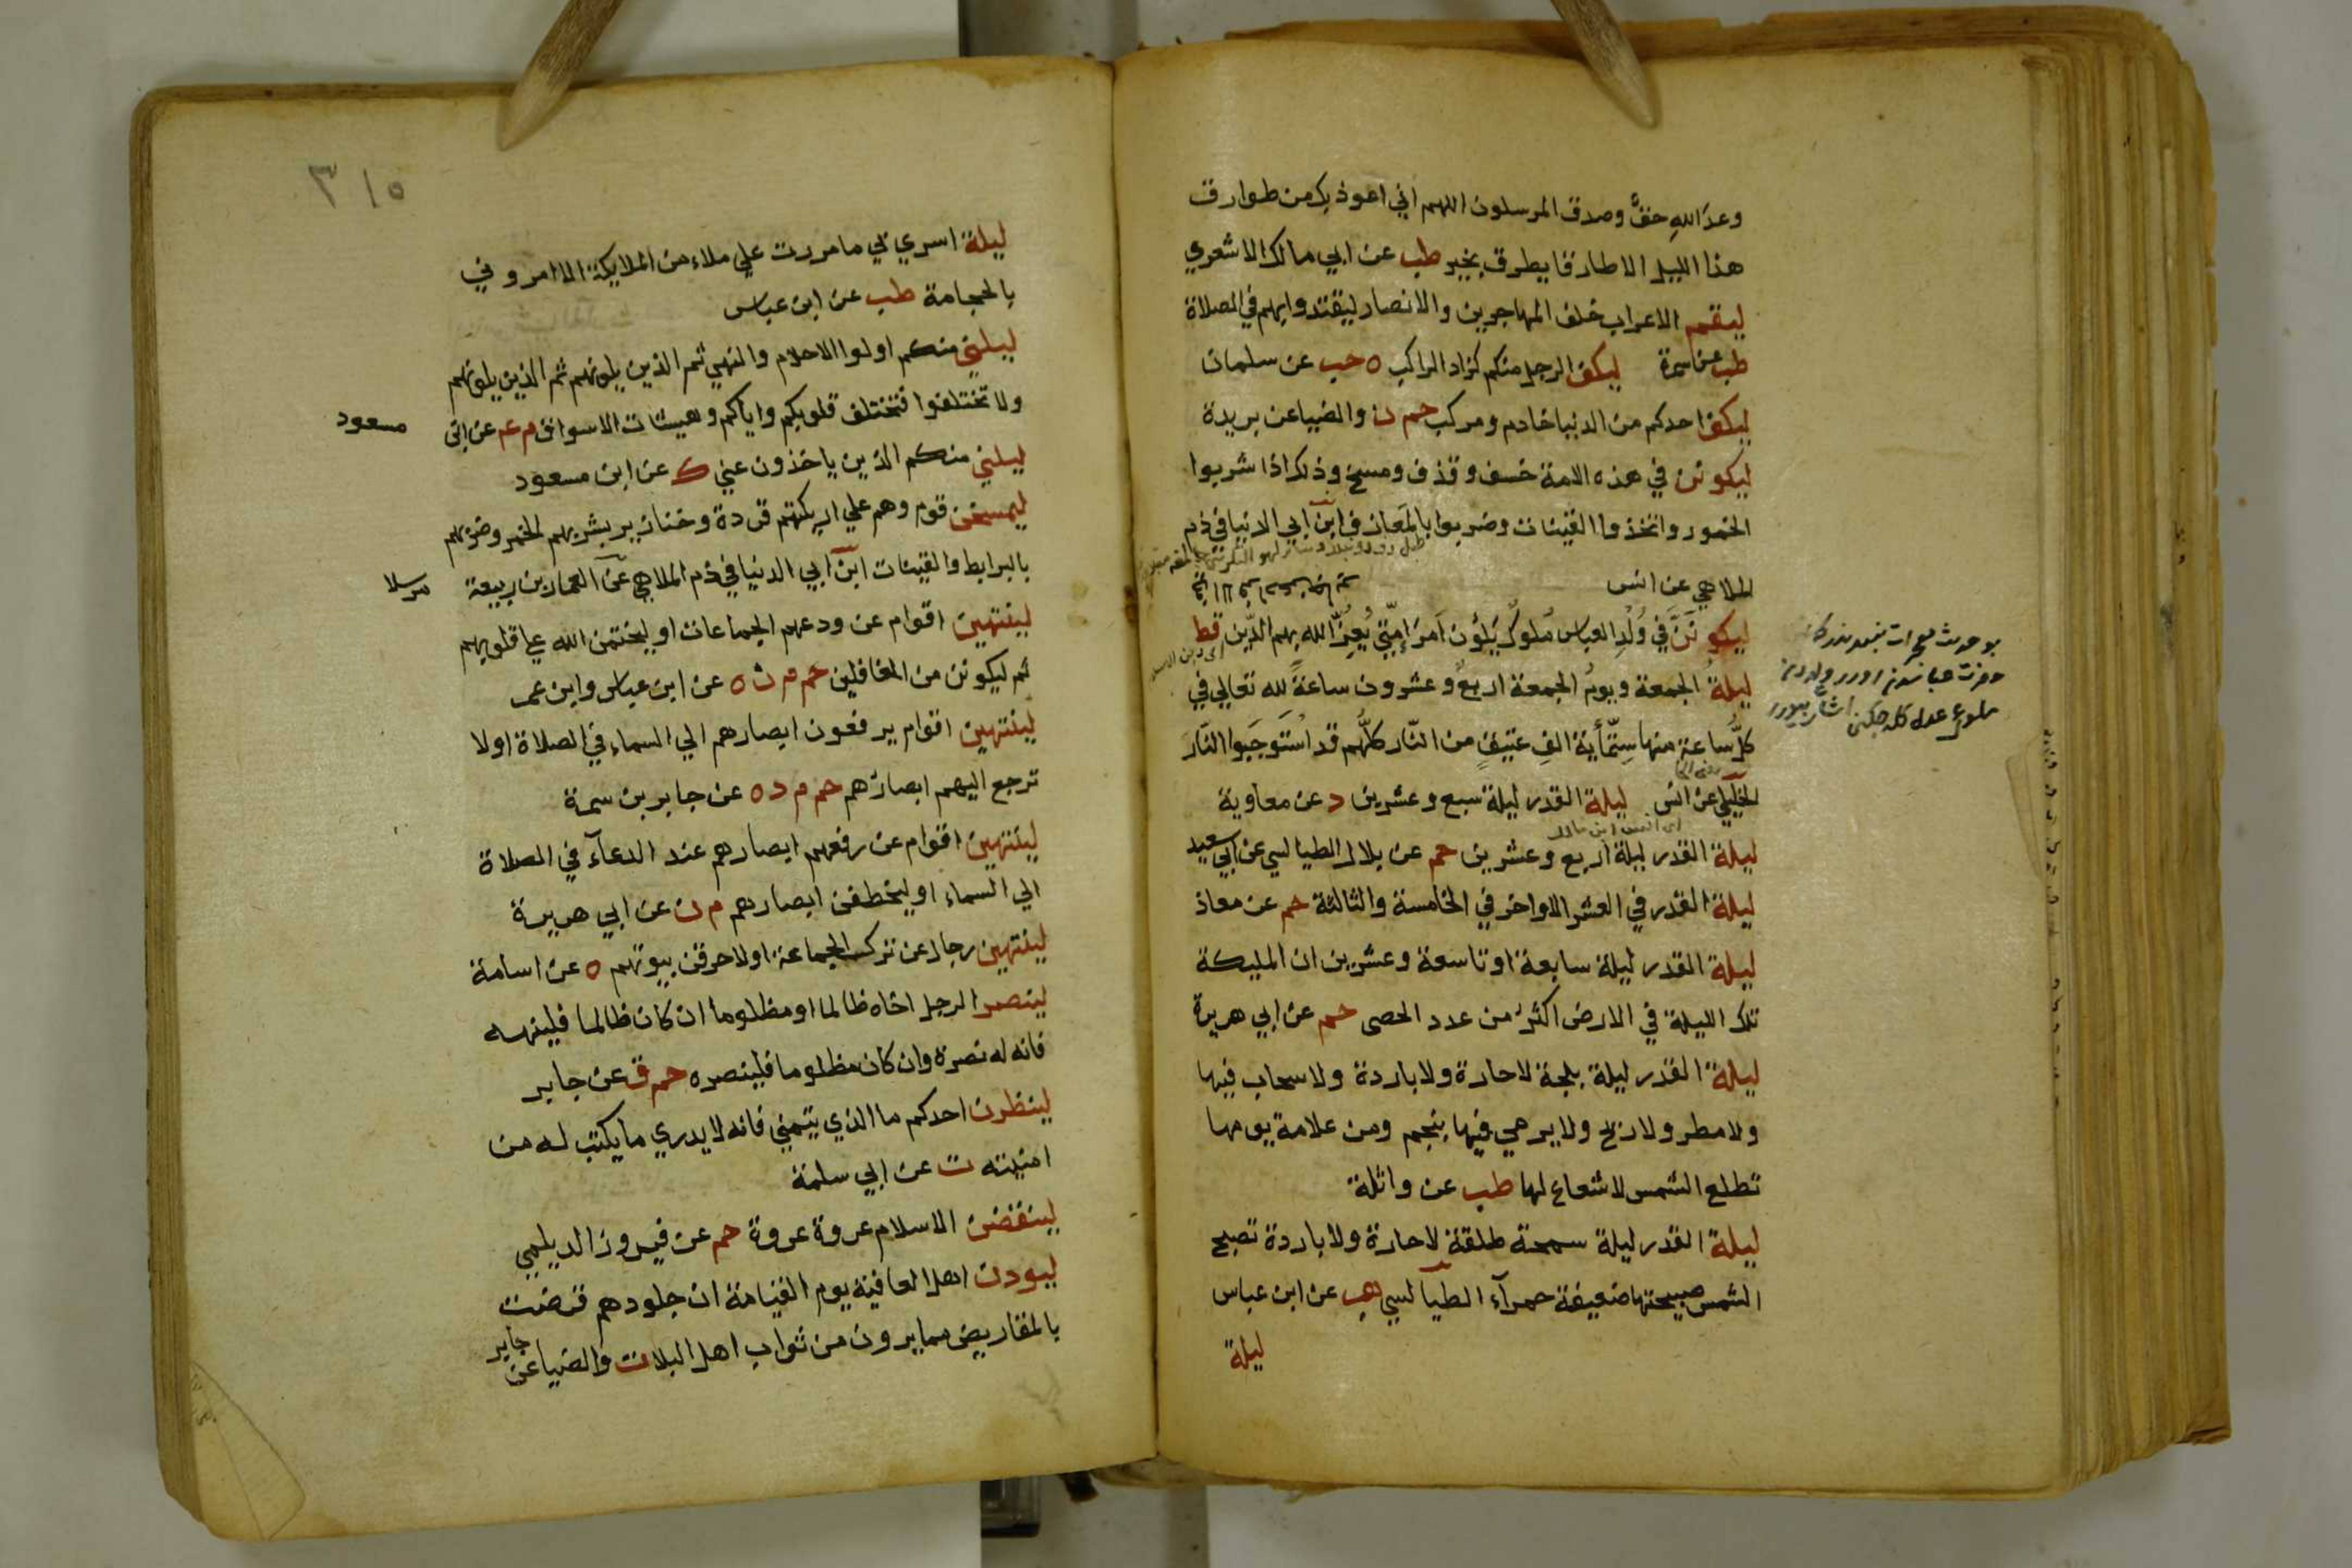 وعدَ اللهِ حقٌّ وصدق المرسلون اللهم اني اعوذ بك من طوارق
هذا الليل الا طارقا يطرق بخير طب عن ابي مالك الاشعري
ليقم الاعراب خلف المهاجرين والانصار ليقتدوا بهم في الصلاة
طب عن سمرة ليكف الرجل منكم كزاد الراكب ه حب عن سلمان
ليكف احدكم من الدنيا خادم ومركب حم ن والضيا عن بريدة
ليكونن في هذه الامة خسف وقذف ومسخ وذلك اذا شربوا
الخمور واتخذوا القينات وضربوا بالمعازف ابن ابي الدنيا في ذم
الملاهي عن انس
ليكونَنَّ في وُلْدِ العباس مُلُوكٌ يَلُوْنَ اَمرَ اُمّتِي يُعِزُّ الله بهم الدّين قط
ليلةُ الجمعة ويومُ الجمعة اربعٌ وعشرون ساعةً لله تعالي في
كلِّ ساعةٍ منها سِتّمأية الفِ عتيقٍ من النّار كلُّهم قد اُستَوجَبوا النّارَ
الخليلي عن انس ليلة القدر ليلة سبع وعشرين د عن معاوية
ليلة القدر ليلة اربع وعشرين حم عن بلال الطيالسي عن ابي سعيد
ليلة القدر في العشر الاواخر في الخامسة والثالثة حم عن معاذ
ليلة القدر ليلة سابعة او تاسعة وعشرين ان المليكة
تلك الليلة في الارض اكثر من عدد الحصى حم عن ابي هريرة
ليلة القدر ليلة بلجة لا حارة ولا باردة ولا سحاب فيها
ولا مطر ولا ريح ولا يرمي فيها بنجم ومن علامة يومها
تطلع الشمس لا شعاع لها طب عن واثلة
ليلة القدر ليلة سمحة طلقة لا حارة ولا باردة تصبح
الشمس صبيحتها ضعيفة حمرآء الطيالسي هب عن ابن عباس
ليلة
٣١٥
ليلة اسري بي ما مررت علي ملاء من الملايكة الا امروني
بالحجامة طب عن ابن عباس
ليليني منكم اولوا الاحلام والنهي ثم الذين يلونهم ثم الذين يلونهم
ولا تختلفوا فتختلف قلوبكم واياكم وهيشات الاسواق م عم عن ابن مسعود
ليليني منكم الذين ياخذون عني ك عن ابن مسعود
ليمسخن قوم وهم علي اريكتهم قردة وخنازير بشربهم الخمر وضربهم
بالبرابط والقينات ابن ابي الدنيا في ذم الملاهي عن الغاز بن ربيعة مرسلا
لينتهين اقوام عن ودعهم الجماعات او ليختمن الله علي قلوبهم
ثم ليكونن من الغافلين حم م ن ه عن ابن عباس وابن عمر
لينتهين اقوام يرفعون ابصارهم الي السماء في الصلاة او لا
ترجع اليهم ابصارهم حم م د ه عن جابر بن سمرة
لينتهين اقوام عن رفعهم ابصارهم عند الدعآء في الصلاة
الي السماء او ليخطفن ابصارهم م ن عن ابي هريرة
لينتهين رجال عن ترك الجماعة او لاحرقن بيوتهم ه عن اسامة
لينصر الرجل اخاه ظالما او مظلوما ان كان ظالما فلينهه
فانه له نصرة وان كان مظلوما فلينصره حم ق عن جابر
لينظرن احدكم ما الذي يتمني فانه لا يدري ما يكتب له من
امنيته ت عن ابي سلمة
لينقضن الاسلام عروة عروة حم عن فيروز الديلمي
ليودن اهل العافية يوم القيامة ان جلودهم قرضت
بالمقاريض مما يرون من ثواب اهل البلا ت والضيا عن جابر